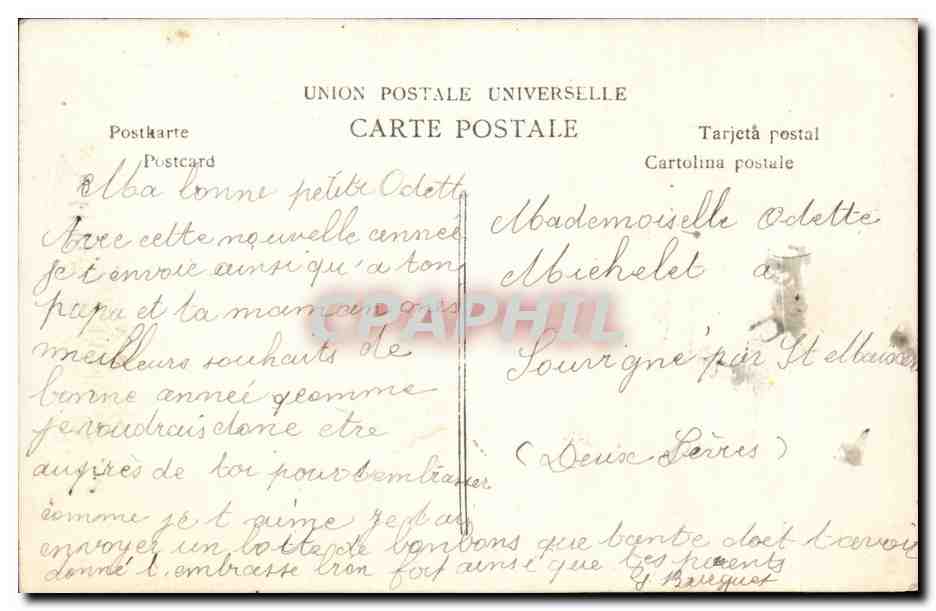 UNION POSTALE UNIVERSELLE
CARTE POSTALE
Postkarte
Tarjetâ postal
Postcard
Cartolina postale
Ma bonne petite Odette
Avec cette nouvelle année
je t envoie ainsi qu'a ton
papa et ta maman mes
meilleurs souhaits de
bonne année comme
je voudrais donc etre
auprès de toi pour t embrasser
comme je t aime je t ai
envoyer un boite de bonbons que tante doit t avoir
donné t embrasse bien fort ainsi que tes parents
Mademoiselle Odette
Michelet a
Souvigné par St Maixent
(Deux Sèvres)
CPAPHIL